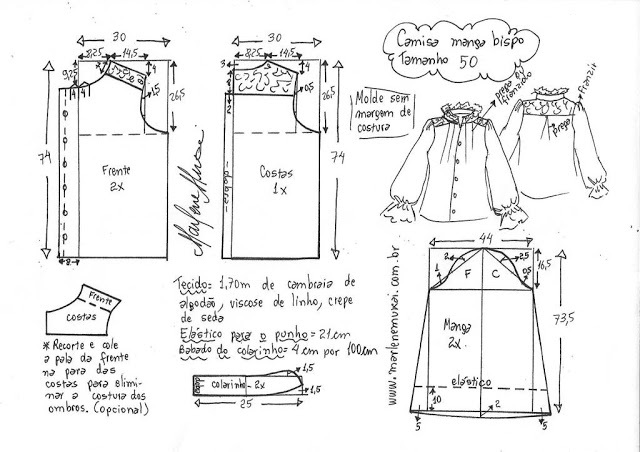 Camisa manga bispo
Tamanho 50
30
8,25
14,5
9,25
4
4
4
1,5
26,5
74
Frente
2x
8
Marlene Mukai
30
8,25
14,5
3
4
0,5
26,5
74
dobra
Costas
1x
Molde sem
margem de
costura
prega e/
franzido
franzir
prega
Frente
costas
* Recorte e cole
a pala da frente
na para das
costas para elimi-
nar a costura dos
ombros. (opcional)
Tecido: 1,70m de cambraia de
algodão, viscose de linho, crepe
de seda
Elástico para o punho = 21cm
Babado do colarinho = 4cm por 100cm
colarinho - 2x
1,5
1,5
25
www.marlenemukai.com.br
44
2
2,5
1
F
C
0,5
16,5
73,5
Manga
2x
elástico
10
2
5
5